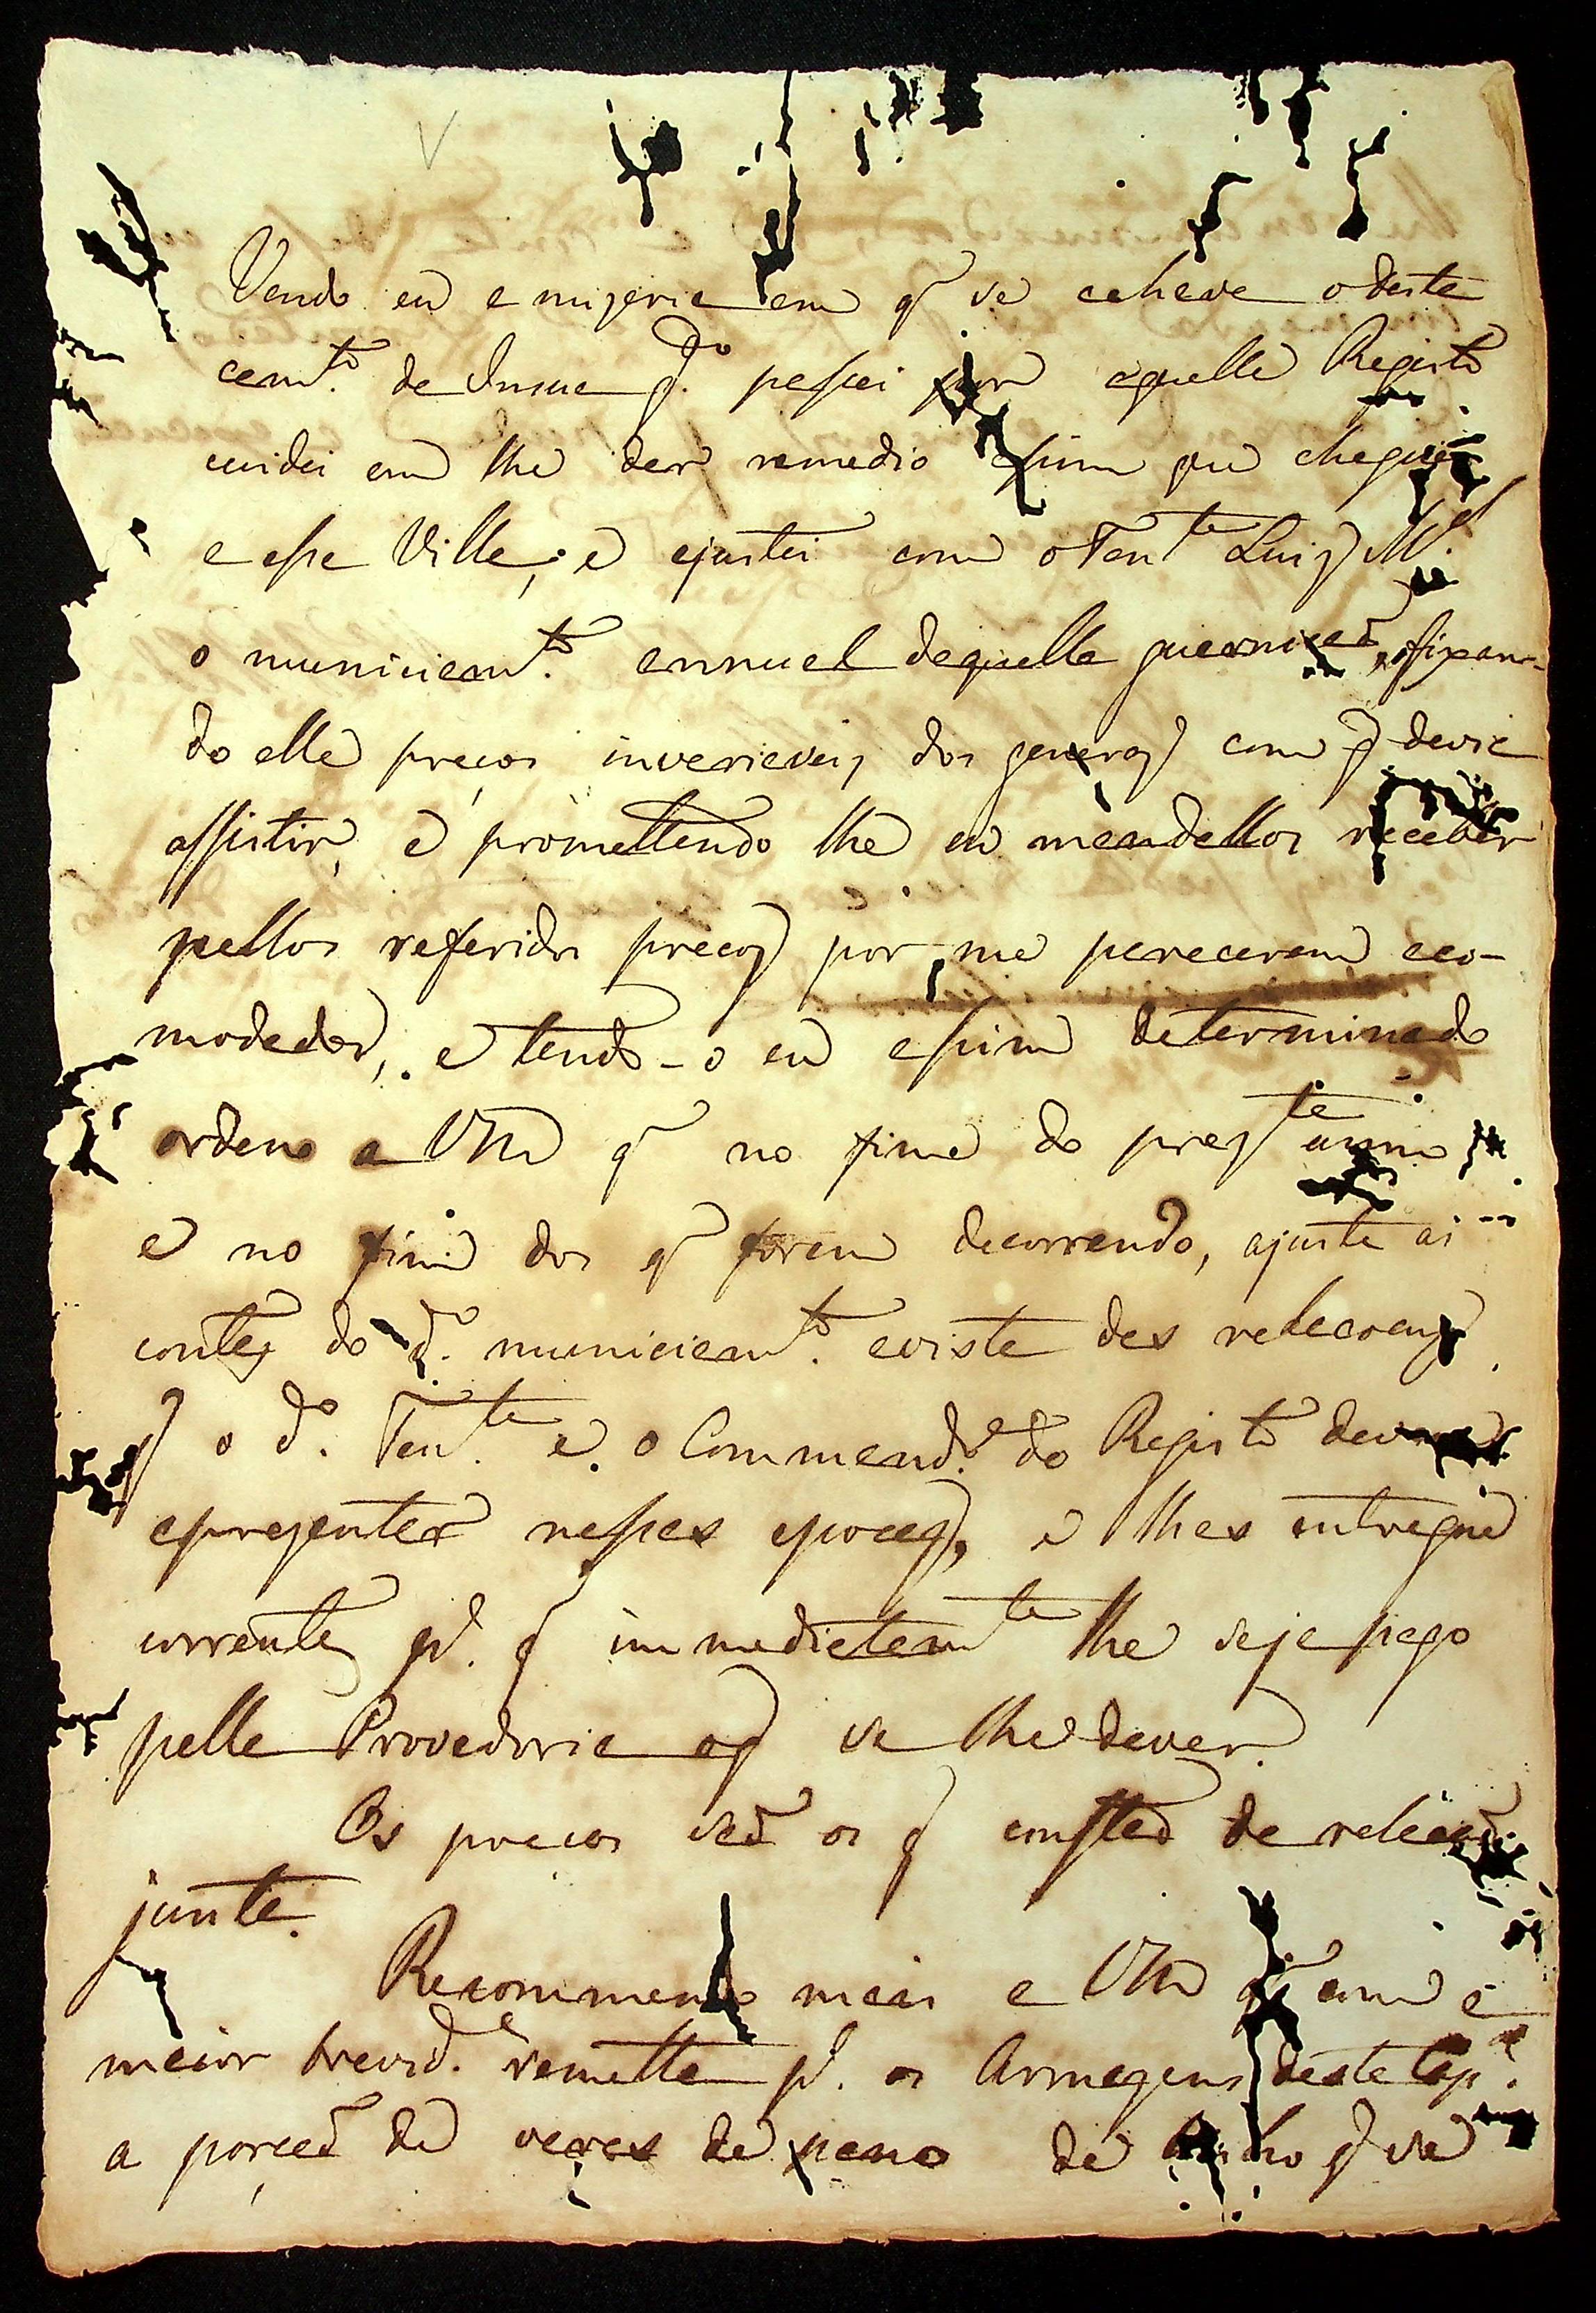 Vendo eu a mizeria em q̃ se achava o desta
cam.to de Insua q.do passei por aquelle Registo
cuidei em lhe dar remedio assim que cheguei
a essa Villa; e ajustei com o Ten.te Luiz M.el
o municiam.to annual daquella guarnicaõ, fixan-
do elle preços invariaveis dos generos com q̃ devia
assistir, e promettendo lhe eu mandallos receber
pellos referidos preços por me parecerem aco-
modados, e tendo-o eu assim determinado
ordeno a VM q̃ no fim do prez.te anno
e no fim dos q̃ forem decorrendo, ajuste as
contas do d.o municiam.to avista das relacoens
q̃ o d.o Ten.te e o Commend.e do Registo devem
aprezentar nessas epocas, e lhas entregue
correntes p.a q̃ immediatam.te lhe seja pago
pella Provedoria oq̃ se lhe dever.
Os precos saõ os q̃ constaõ da relacaõ
junta.
Recommendo mais a VM q̃ com a
maior brevid.e remetta p.a os Armazens desta Cap.al
a porçaõ de varas de pano de q̃ se